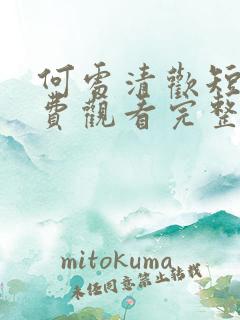 何處清歡短
費觀看完整
mitokuma
未任同意禁止轉載